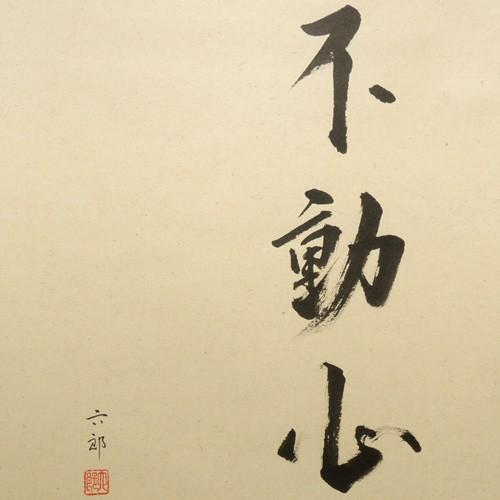 不動心
六郎